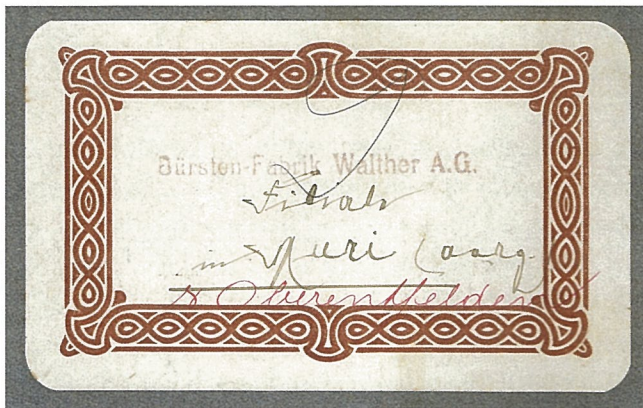 Bürsten-Fabrik Walther A.G.
Filiale
in Muri (aarg.
& Oberentfelden